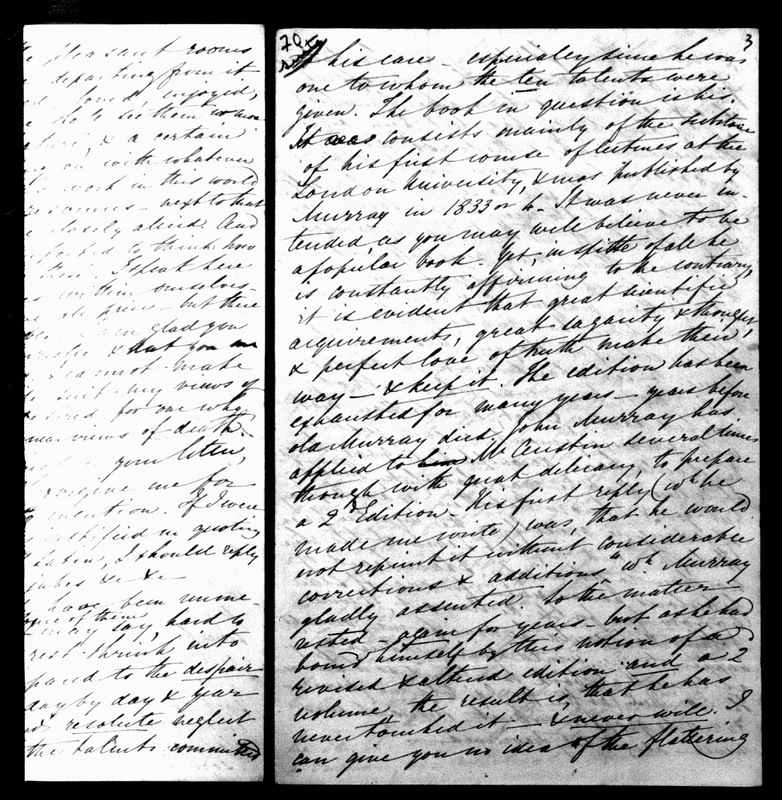 pleasant rooms
departing from it
loved, enjoyed,
to see them
& a certain
with whatever
work in this world
next to that
closely allied. And
to think how
I speak here
within ourselves
but there
am glad you
& that you
cannot make
my views of
for one who
views of death.
your letter,
forgive me for
If I were
justified in quoting
Latin, I should reply
jubes &c &c
have been
some of them
may say, hard to
rest shrink into
to the despair
day by day & year
resolute neglect
the talents committed
3
to his care - especially since he was
one to whom the ten talents were
given. The book in question is his.
It was consists mainly of the substance
of his first course of lectures at the
London University, & was published by
Murray in 1833 or 4. It was never in-
tended, as you may well believe to be
a popular book. Yet, in spite of all he
is constantly affirming to the contrary,
it is evident that great scientific
acquirements, great sagacity & thought
& perfect love of truth make their
way - & keep it. The edition has been
exhausted for many years - years before
old Murray died. John Murray has
applied to him Mr Austin several times
though with great delicacy, to prepare
a 2d Edition - His first reply (wh he
made me write) was, that he would
not reprint it without considerable
corrections & additions" wh Murray
gladly assented to. the matter
rested - again for years - but as he had
bound himself by this notion of a
revised & altered edition and a 2
volume the result is, that he has
never touched it - & never will. I
can give you no idea of the flattering